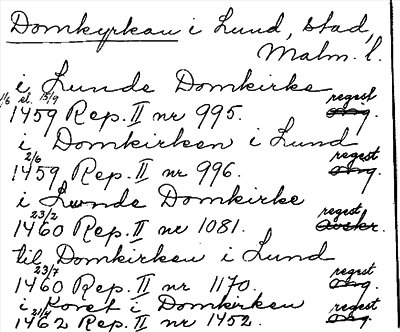 Domkyrkan i Lund, stad,
Malm. l.
i Lunde Domkirke
1/6 el. 15/9 regest
1459 Rep. II nr 995. orig.
i Domkirken i Lund
2/6 regest
1459 Rep. II nr 996. orig.
i Lunde Domkirke
23/2 regest
1460 Rep. II nr 1081. avskr.
til Domkirken i Lund
23/7 regest
1460 Rep. II nr 1170. orig.
i Koret i Domkirken regest
21/4
1462 Rep. II nr 1452. orig.